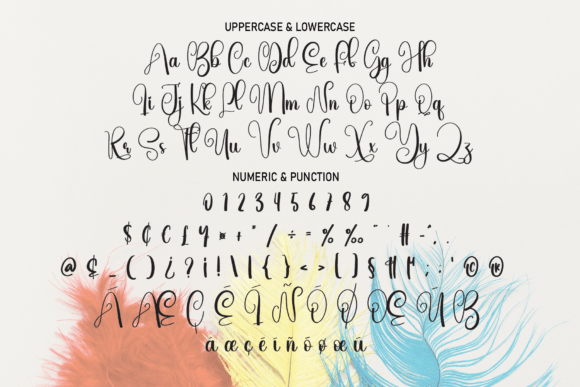 UPPERCASE & LOWERCASE
Aa Bb Cc Dd Ee Ff Gg Hh
Ii Jj Kk Ll Mm Nn Oo Pp Qq
Rr Ss Tt Uu Vv Ww Xx Yy Zz
NUMERIC & PUNCTION
0 1 2 3 4 5 6 7 8 9
$ ₵ £ ¥ ¤ + * / ÷ = % ‰ " ' # - ^ , .
@ _ ( ) ¿ ? ¡ ! \ | { } < > [ ] § ¶ ; : ' © ®
Ã Æ Ç É Í Ñ Ó Ø Œ Ú
ã æ ç é í ñ ó ø œ ú